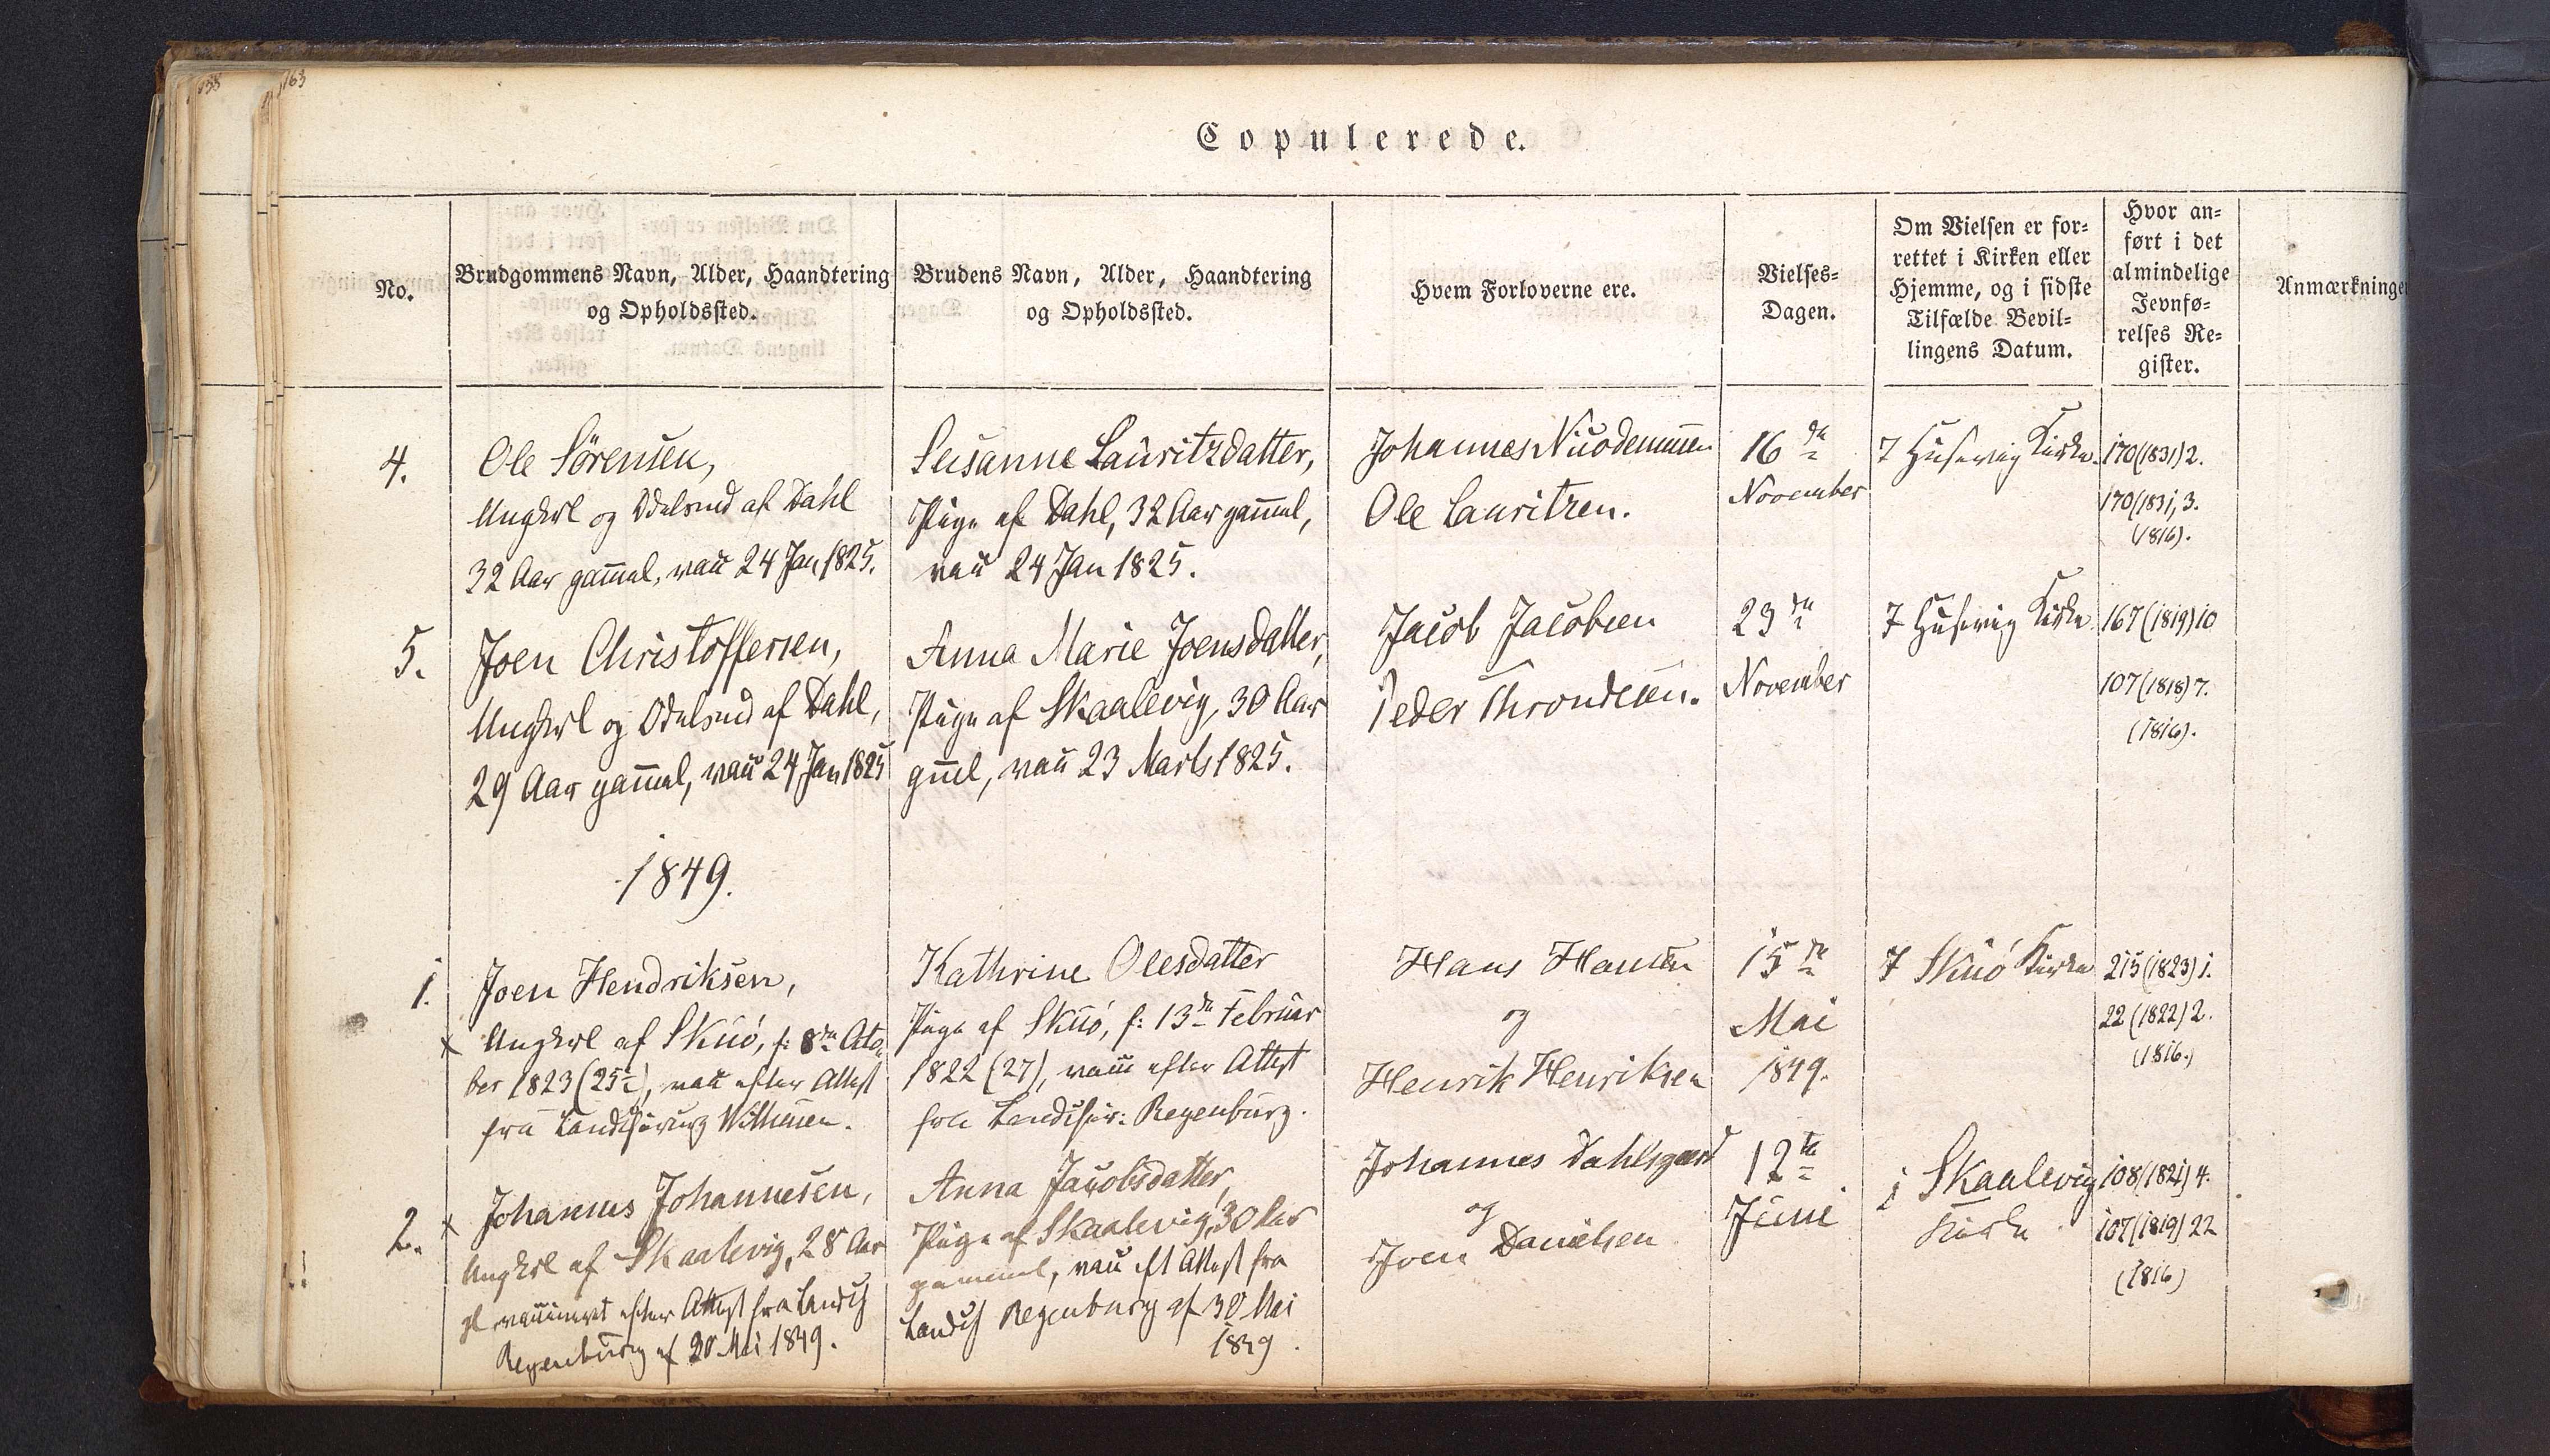 163
Copulerede.
No.
Brudgommens Navn, Alder, Haandtering
og Opholdssted.
Brudens Navn, Alder, Haandtering
og Opholdssted.
Hvem Forloverne ere.
Vielses-
Dagen.
Om Vielsen er for-
rettet i Kirken eller
Hjemme, og i sidste
Tilfælde Bevil-
lingens Datum.
Hvor an-
ført i det
almindelige
Jevnfø-
relses Re-
gister.
Anmærkninge
4.
Ole Sörensen,
Ungkarl og Odelsmd af Dahl
32 Aar gam̄el, vacc 24 Jan 1825.
Susanne Lauritzdatter,
Pige af Dahl, 32 Aar gam̄el,
vacc 24 Jan 1825.
Johannes
Ole Lauritzen.
16de
November
I Husevig Kirke.
170(1831)2.
170(1831, 3.
(1816).
5.
Joen Christoffersen,
Ungkarl og Odelsmd af Dahl,
29 Aar gam̄el, vacc 24 Jan 1825
Anna Marie Joensdatter,
Pige af Skaalevig, 30 Aar
gm̄el, vacc 23 Marts 1825.
Jacob Jacobsen
Peder Throndesen.
23de
November
I Husevig Kirke
167(1819)10
107(1818)7.
(1816).
1849.
1.
Joen Hendriksen,
Ungkarl af Skuö, f: 8de Octo
ber 1823 (25½), vacc efter Attest
fra Landchirurg
Kathrine Olesdatter
Pige af Skuö, f: 13de Februar
1822 (27), vacc efter Attest
fra Landchir: Regenburg.
Hans Hansen
og
Henrik Henriksen
15de
Mai
1849.
I Skuö Kirke
215(1823)1.
22(1822)2.
(1816.)
2.
Johannes Johannesen,
Ungkarl af Skaalevig, 28 Aar
gl vaccineret efter Attest fra Landch
Regenburg af 30 Mai 1849.
Anna Jacobsdatter,
Pige af Skaalevig, 30 Aar
gammel, vacc eft Attest fra
Landch Regenburg af 30 Mai
1849.
Johannes Dahlsgaard
og
Joen Danielsen
12te
Juni
i Skaalevig
Kirke
108(1821)4.
107(1819)22
(1816)